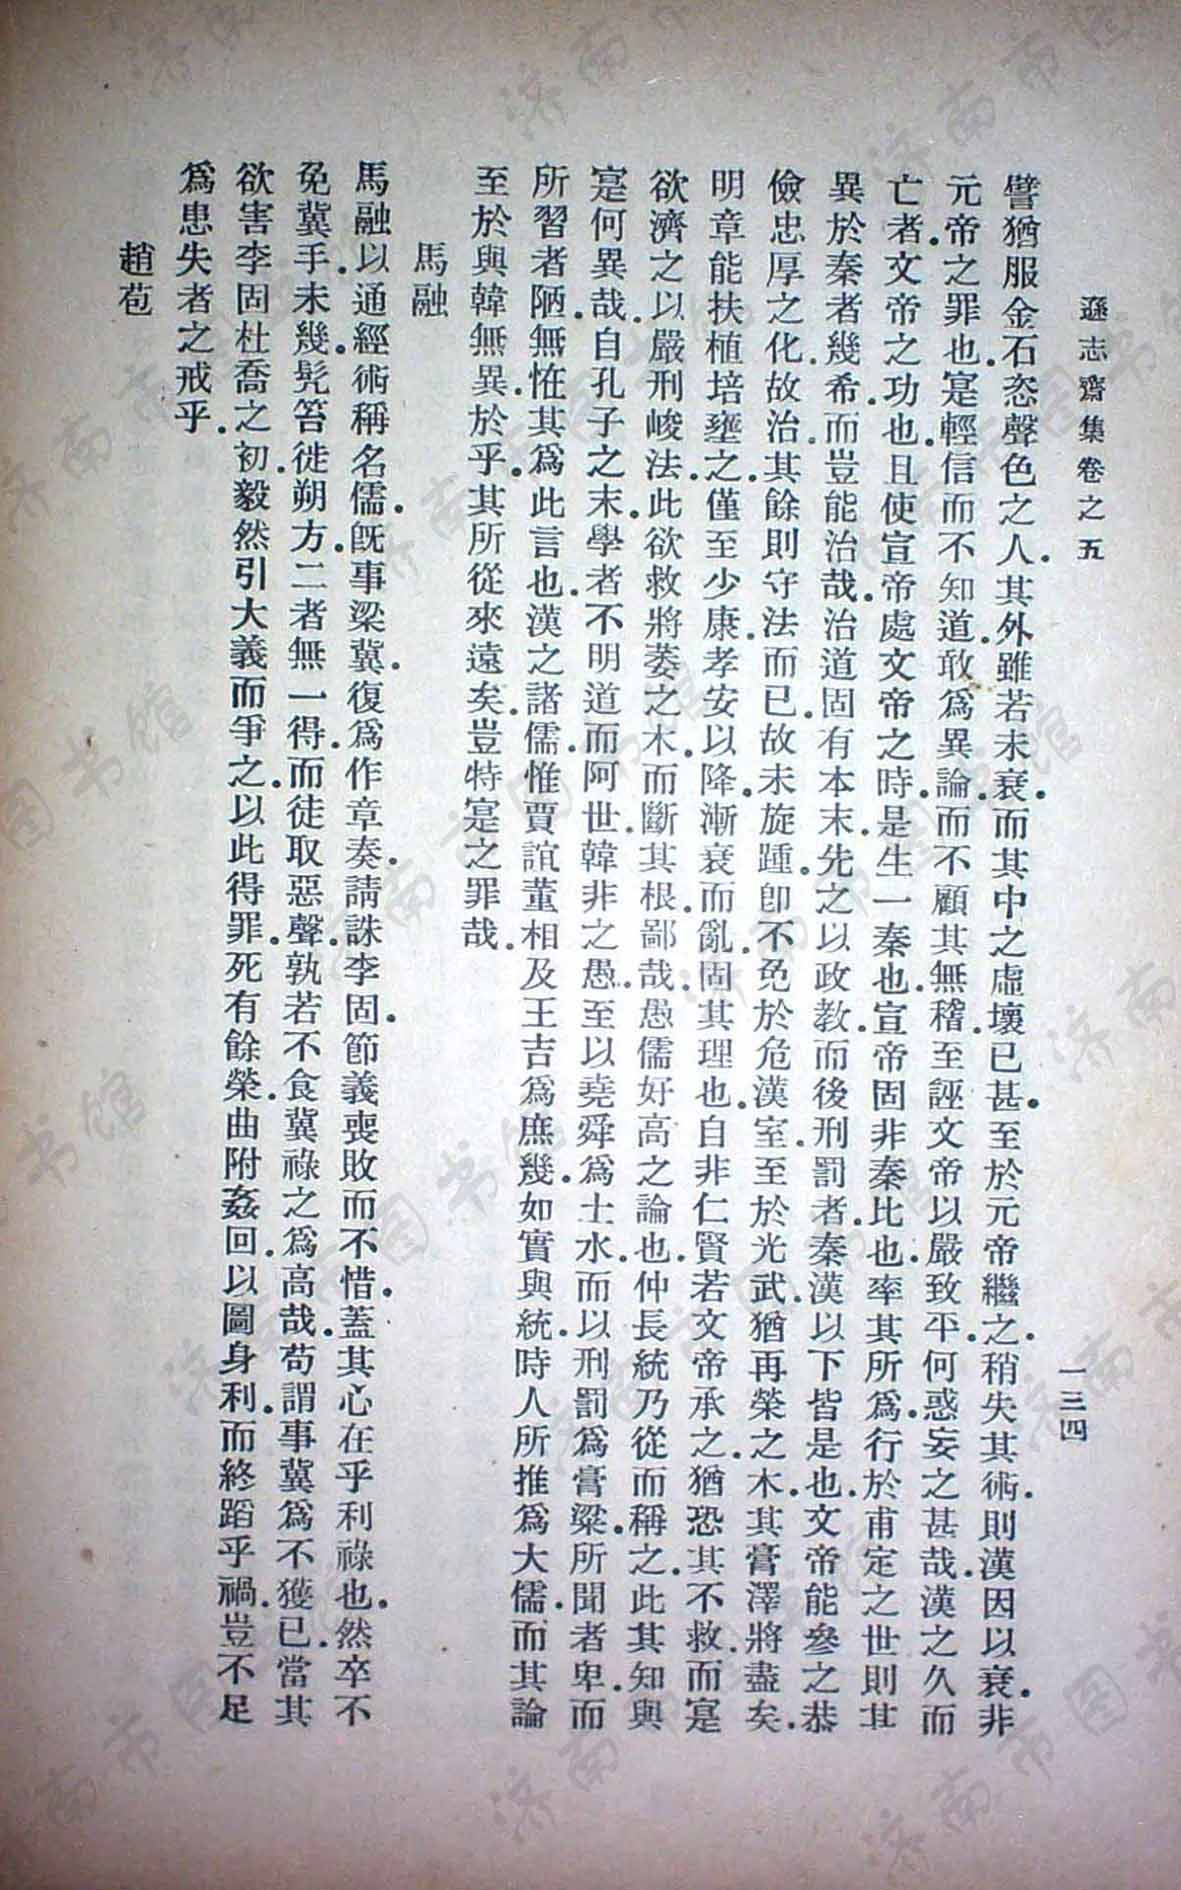 遜志齋集卷之五
一三四
譬猶服金石恣聲色之人.其外雖若未衰.而其中之虛壞已甚.至於元帝繼之.稍失其術.則漢因以衰.非
元帝之罪也.寔輕信而不知道.敢爲異論.而不顧其無稽.至誣文帝以嚴致平.何惑妄之甚哉.漢之久而
亡者.文帝之功也.且使宣帝處文帝之時.是生一秦也.宣帝固非秦比也.率其所爲.行於甫定之世.則其
異於秦者幾希.而豈能治哉.治道固有本末.先之以政教.而後刑罰者.秦漢以下皆是也.文帝能參之恭
儉忠厚之化.故治.其餘則守法而已.故未旋踵.卽不免於危.漢室至於光武.猶再榮之木.其膏澤將盡矣.
明章能扶植培壅之.僅至少康.孝安以降.漸衰而亂.固其理也.自非仁賢若文帝承之.猶恐其不救.而寔
欲濟之以嚴刑峻法.此欲救將萎之木.而斷其根.鄙哉.愚儒好高之論也.仲長統乃從而稱之.此其知與
寔何異哉.自孔子之末.學者不明道而阿世.韓非之愚.至以堯舜爲土水.而以刑罰爲膏粱.所聞者卑.而
所習者陋.無怪其爲此言也.漢之諸儒.惟賈誼董相及王吉爲庶幾.如實與統.時人所推爲大儒.而其論
至於與韓無異.於乎.其所從來遠矣.豈特寔之罪哉.
馬融
馬融以通經術稱名儒.旣事梁冀.復爲作章奏.請誅李固.節義喪敗而不惜.蓋其心在乎利祿也.然卒不
免冀手.未幾.髡笞徙朔方.二者無一得.而徒取惡聲.孰若不食冀祿之爲高哉.苟謂事冀爲不獲已.當其
欲害李固杜喬之初.毅然引大義而爭之.以此得罪.死有餘榮.曲附姦回.以圖身利.而終蹈乎禍.豈不足
爲患失者之戒乎.
趙苞